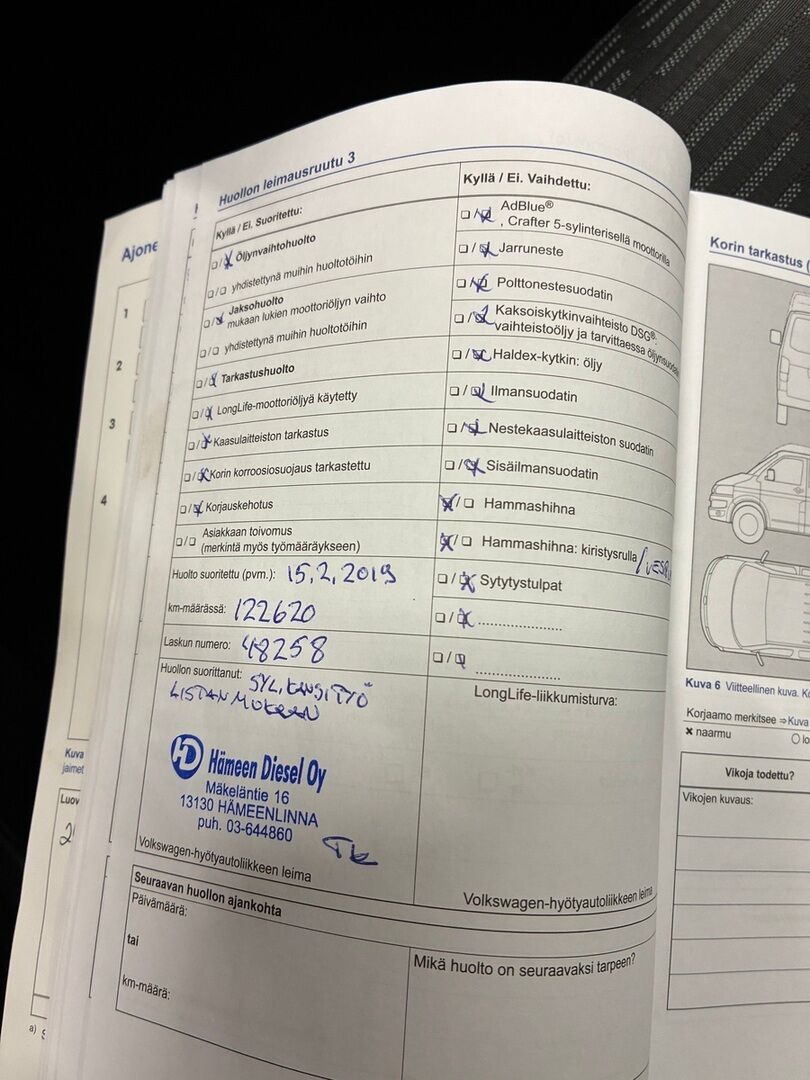 Huollon leimausruutu 3
Kyllä / Ei. Suoritettu:
Öljynvaihtohuolto
yhdistettynä muihin huoltotöihin
Jaksohuolto
mukaan lukien moottoriöljyn vaihto
yhdistettynä muihin huoltotöihin
Tarkastushuolto
LongLife-moottoriöljyä käytetty
Kaasulaitteiston tarkastus
Korin korroosiosuojaus tarkastettu
Korjauskehotus
Asiakkaan toivomus
(merkintä myös työmääräykseen)
Huolto suoritettu (pvm.): 15.2.2019
km-määrässä: 122620
Laskun numero: 48258
Huollon suorittanut: SYL. KANSITYÖ
LISTAN MUKAAN
HD Hämeen Diesel Oy
Mäkeläntie 16
13130 HÄMEENLINNA
puh. 03-644860
TK
Volkswagen-hyötyautoliikkeen leima
Kyllä / Ei. Vaihdettu:
AdBlue®
, Crafter 5-sylinterisellä moottorilla
Jarruneste
Polttonestesuodatin
Kaksoiskytkinvaihteisto DSG®:
vaihteistoöljy ja tarvittaessa öljynsuodatin
Haldex-kytkin: öljy
Ilmansuodatin
Nestekaasulaitteiston suodatin
Sisäilmansuodatin
Hammashihna
Hammashihna: kiristysrulla /
Sytytystulpat
LongLife-liikkumisturva:
Volkswagen-hyötyautoliikkeen leima
Seuraavan huollon ajankohta
Päivämäärä:
tai
km-määrä:
Mikä huolto on seuraavaksi tarpeen?
1
2
3
4
Kuva
a)
Korin tarkastus (
Kuva 6 Viitteellinen kuva.
Korjaamo merkitsee ⇒ Kuva
✖ naarmu
Vikoja todettu?
Vikojen kuvaus: